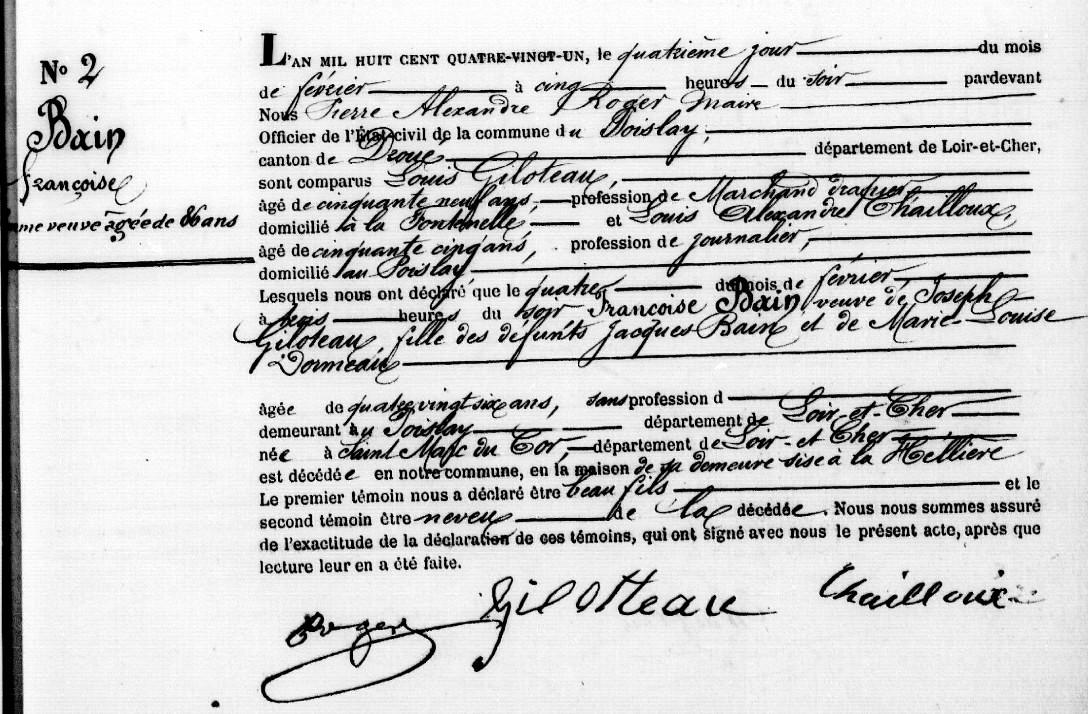 N° 2
Bain
françoise
me veuve âgée de 86 ans
L'AN MIL HUIT CENT QUATRE-VINGT-UN, le quatrième jour du mois
de février à cinq heures du soir pardevant
Nous Pierre Alexandre Roger Maire
Officier de l'État-civil de la commune du Poislay,
canton de Droué, département de Loir-et-Cher,
sont comparus Louis Giloteau,
âgé de cinquante neuf ans, profession de Marchand draper
domicilié à la Fontenelle, et Louis Alexandre Chailloux,
âgé de cinquante cinq ans, profession de journalier,
domicilié au Poislay,
Lesquels nous ont déclaré que le quatre du mois de février,
à trois heures du soir Françoise Bain veuve de Joseph
Giloteau, fille des défunts Jacques Bain et de Marie-Louise
Dormeau
âgée de quatre vingt six ans, sans profession d
demeurant au Poislay département de Loir-et-Cher
née à Saint Marc du Cor, département de Loir-et Cher
est décédée en notre commune, en la maison de sa demeure sise à la Hellière
Le premier témoin nous a déclaré être beau fils et le
second témoin être neveu de la décédée. Nous nous sommes assuré
de l'exactitude de la déclaration de ces témoins, qui ont signé avec nous le présent acte, après que
lecture leur en a été faite.
Roger Gilotteau Chailloux